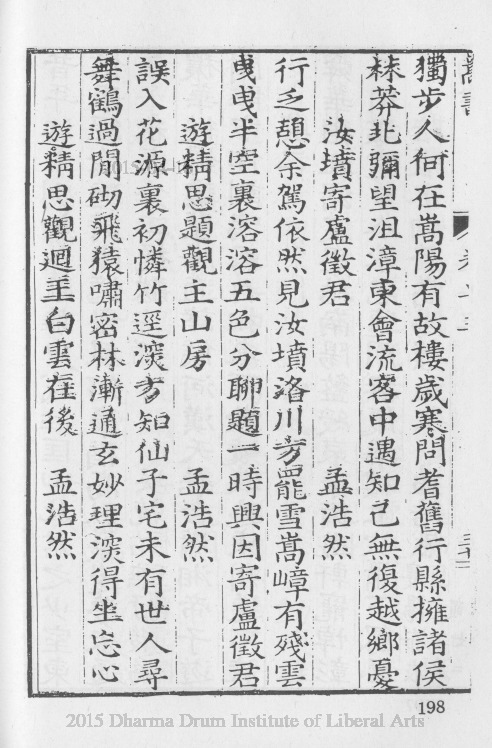 獨步人何在嵩陽有故樓歲寒問耆舊行縣擁諸侯
林莽北彌望沮漳東會流客中遇知己無復越鄉憂
汝墳寄盧徵君 孟浩然
行乏憩余駕依然見汝墳洛川方罷雪嵩嶂有殘雲
曳曳半空裏溶溶五色分聊題一時興因寄盧徵君
遊精思題觀主山房 孟浩然
誤入花源裏初憐竹逕深方知仙子宅未有世人尋
舞鶴過閒砌飛猿嘯密林漸通玄妙理深得坐忘心
遊精思觀迴王白雲在後 孟浩然
198
2015 Dharma Drum Institute of Liberal Arts